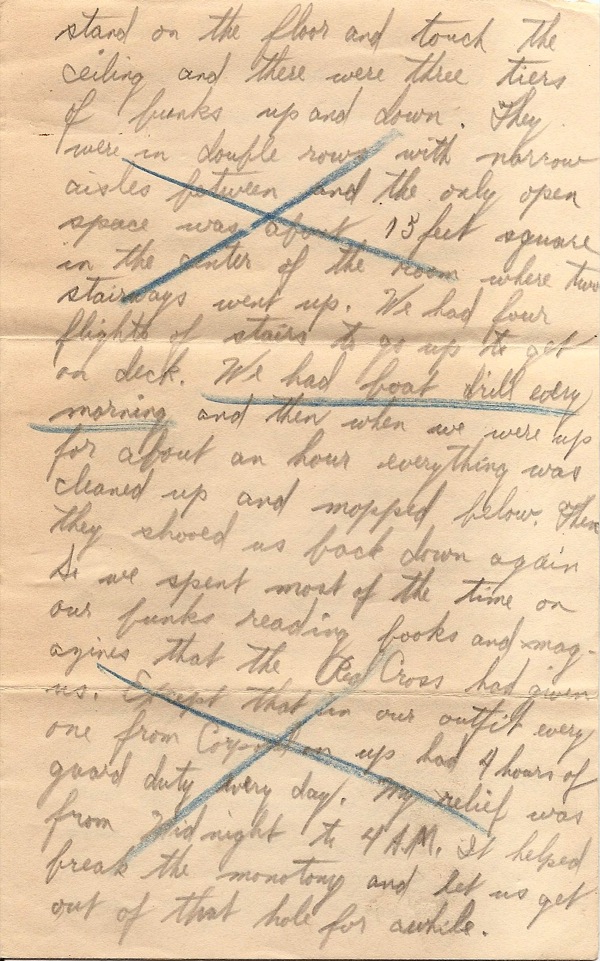 stand on the floor and touch the
ceiling and there were three tiers
of bunks up and down. They
were in double rows with narrow
aisles between and the only open
space was about 15 feet square
in the center of the room where two
stairways went up. We had four
flights of stairs to go up to get
on deck. We had boat drill every
morning and then when we were up
for about an hour everything was
cleaned up and mopped below. Then
they shooed us back down again
So we spent most of the time on
our bunks reading books and mag-
azines that the Red Cross had given
us. Except that in our outfit every
one from Corporal on up had 4 hours of
guard duty every day. My relief was
from Midnight to 4 A.M. It helped
break the monotony and let us get
out of that hole for awhile.